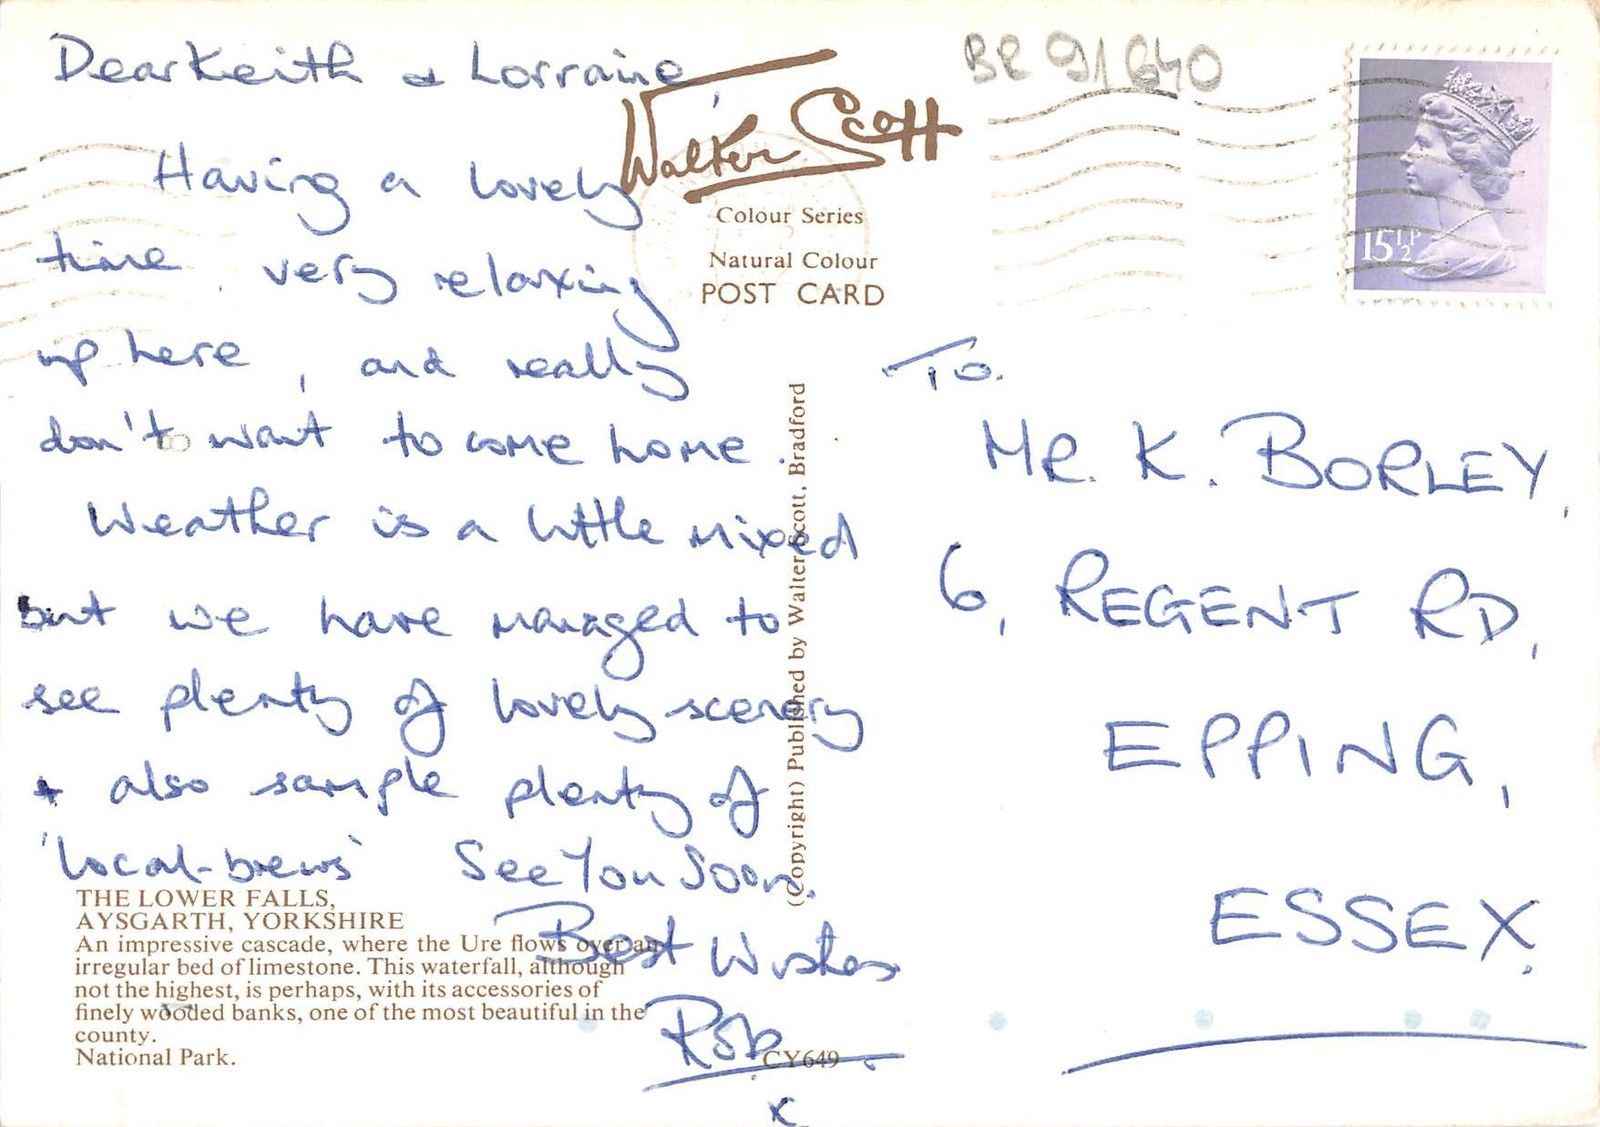 Dear Keith & Lorraine,
Having a lovely
time, very relaxing
up here, and really
don't want to come home.
Weather is a little mixed
but we have managed to
see plenty of lovely scenery
+ also sample plenty of
'local-brews' See You Soon.
Best Wishes
Rob
x
Walter Scott
Colour Series
Natural Colour
POST CARD
BR 91 640
15½P
To.
MR. K. BORLEY,
6, REGENT RD,
EPPING,
ESSEX.
(Copyright) Published by Walter Scott, Bradford
THE LOWER FALLS,
AYSGARTH, YORKSHIRE
An impressive cascade, where the Ure flows over an
irregular bed of limestone. This waterfall, although
not the highest, is perhaps, with its accessories of
finely wooded banks, one of the most beautiful in the
county.
National Park.
CY649